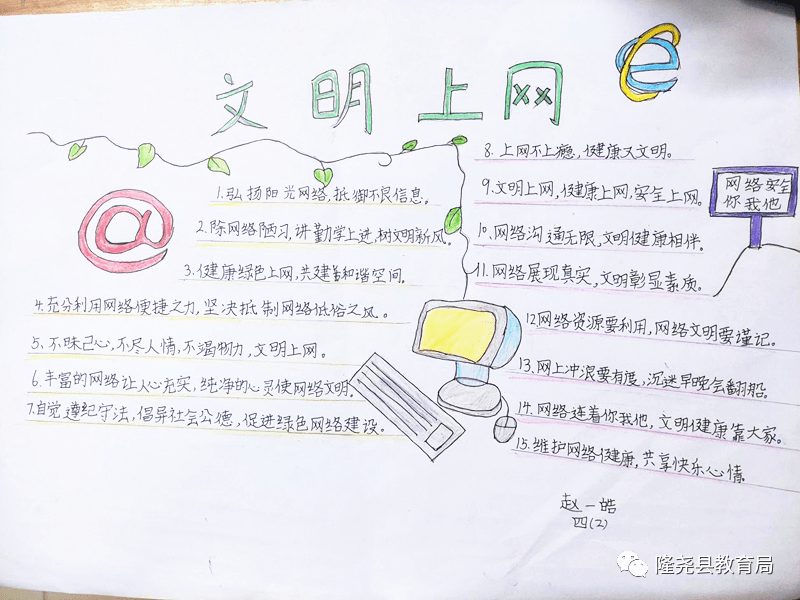 文明上网
1.弘扬阳光网络,抵御不良信息。
2.除网络陋习,讲勤学上进,树文明新风。
3.健康绿色上网,共建善和谐空间。
4.充分利用网络便捷之力,坚决抵制网络低俗之风。
5.不昧己心,不尽人情,不竭物力,文明上网。
6.丰富的网络让人心充实,纯净的心灵使网络文明。
7.自觉遵纪守法,倡异社会公德,促进绿色网络建设。
8.上网不上瘾,健康又文明。
9.文明上网,健康上网,安全上网。
10.网络沟通无限,文明健康相伴。
11.网络展现真实,文明彰显素质。
12.网络资源要利用,网络文明要谨记。
13.网上冲浪要有度,沉迷早晚会翻船。
14.网络连着你我他,文明健康靠大家。
15.维护网络健康,共享快乐心情。
网络安全
你我他
赵一皓
四(2)
隆尧县教育局